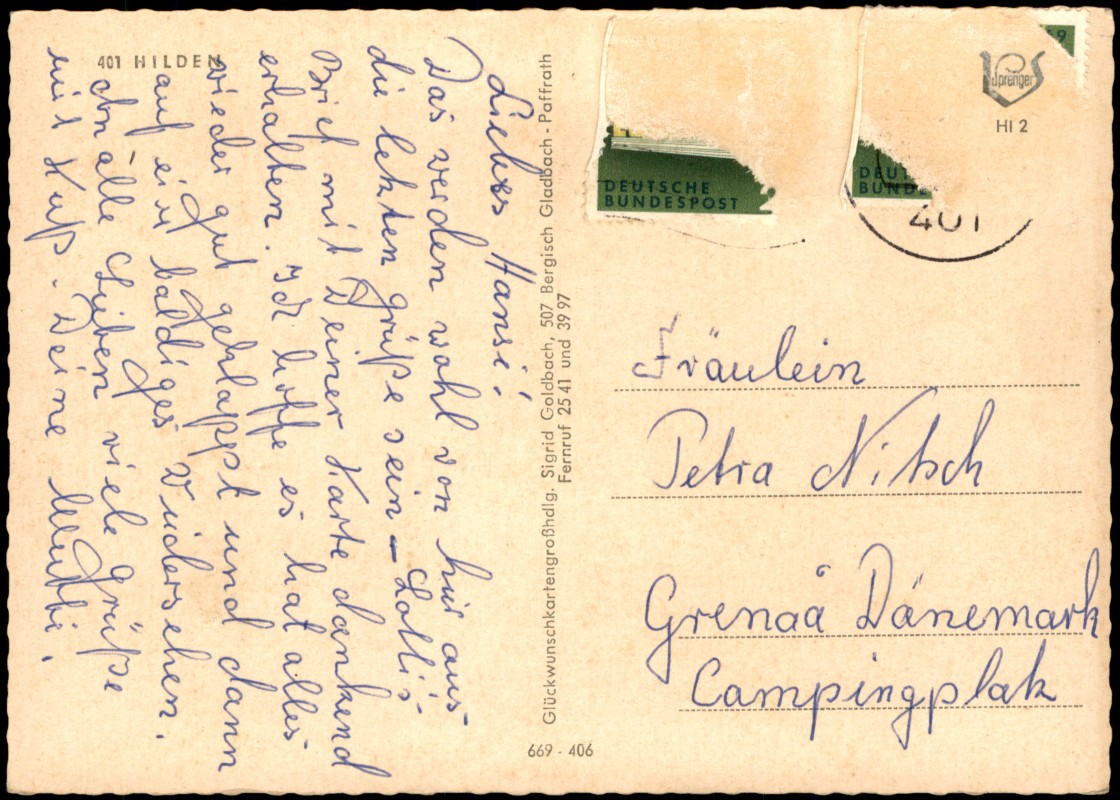 401 HILDEN
Liebes Hansi!
Das werden wohl von hier aus
die letzten Grüße sein – Lollis
Brief mit Deiner Karte dankend
erhalten. Ich hoffe es hat alles
wieder gut geklappt und dann
auf ein baldiges Wiedersehen.
An alle Lieben viele Grüße
mit Kuß. Deine Mutti.
Glückwunschkartengroßhdlg. Sigrid Goldbach, 507 Bergisch Gladbach - Paffrath
Fernruf 25 41 und 39 97
669 - 406
DEUTSCHE
BUNDESPOST
DEUT
BUNDE
69
401
Sprenger
HI 2
Fräulein
Petra Nitsch
Grenaa Dänemark
Campingplatz